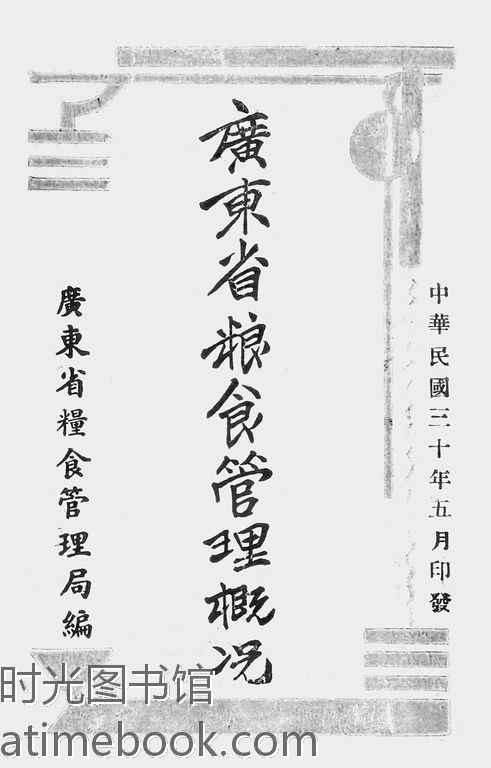 中華民國三十年五月印發
廣東省粮食管理概况
廣東省糧食管理局編
时光图书馆
atimebook.com